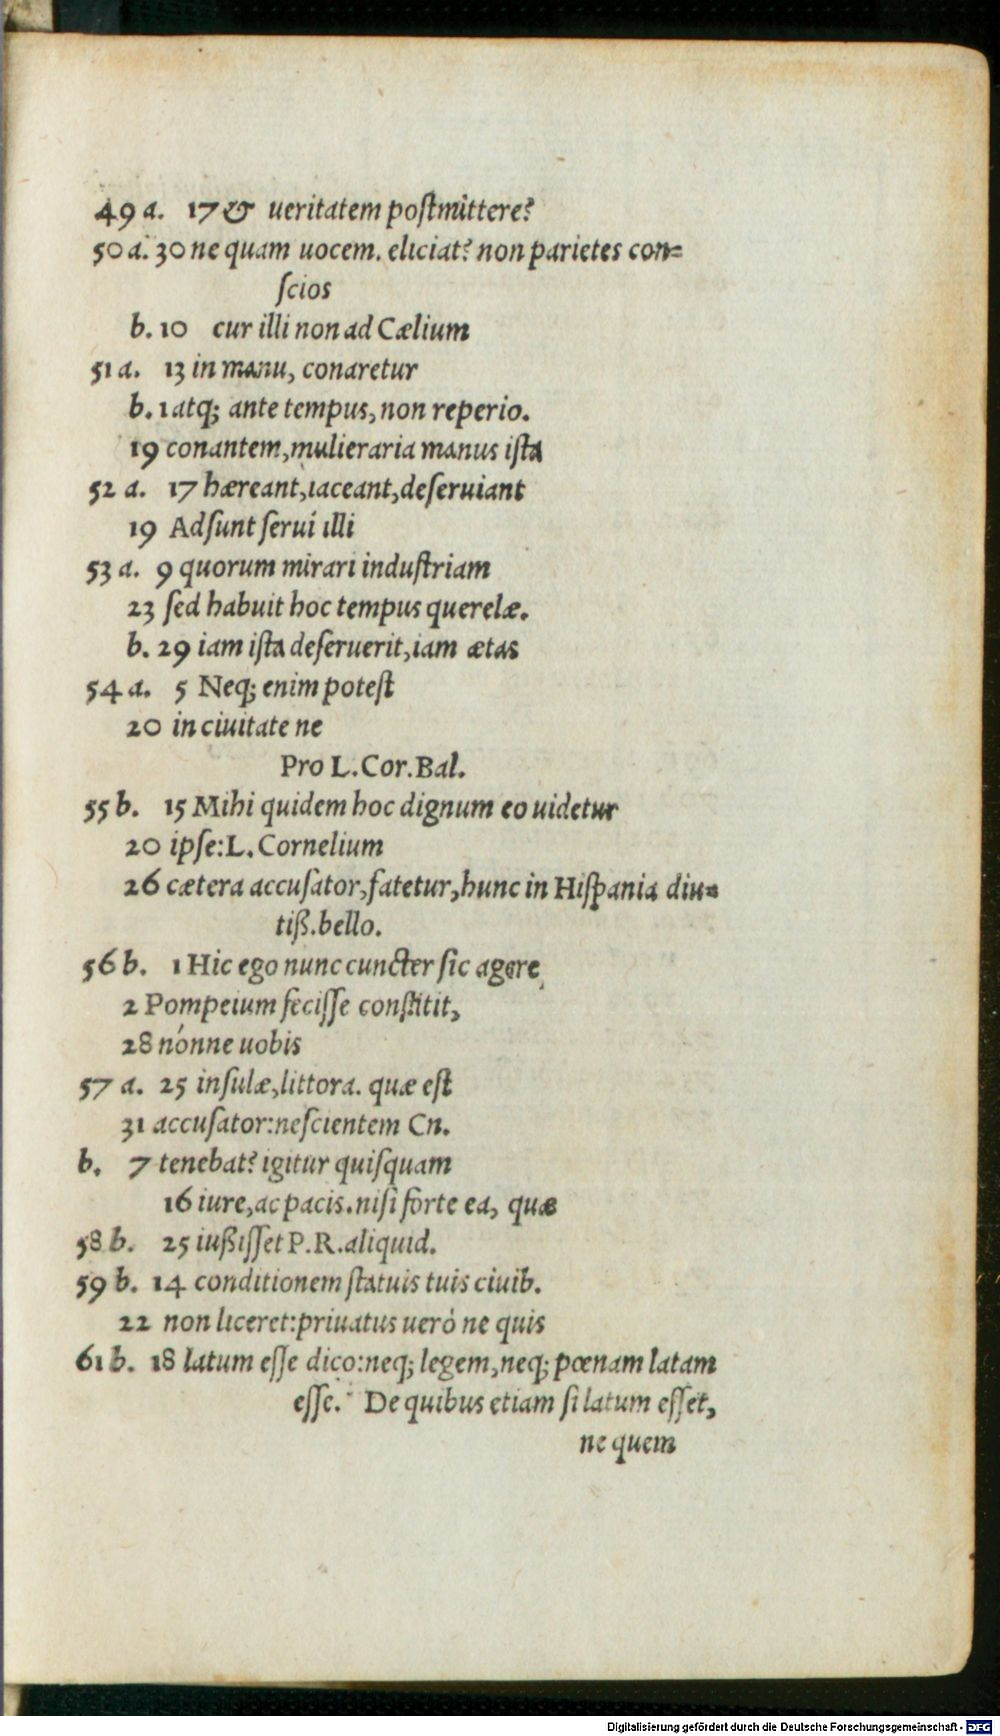 49 a. 17 & ueritatem postmittere?
50 a. 30 ne quam uocem. eliciat? non parietes con=
ſcios
b. 10 cur illi non ad Cælium
51 a. 13 in manu, conaretur
b. 1 atq; ante tempus, non reperio.
19 conantem, mulieraria manus iſta
52 a. 17 hæreant, iaceant, deſeruiant
19 Adſunt ſerui illi
53 a. 9 quorum mirari induſtriam
23 ſed habuit hoc tempus querelæ.
b. 29 iam iſta deſeruerit, iam ætas
54 a. 5 Neq; enim poteſt
20 in ciuitate ne
Pro L. Cor. Bal.
55 b. 15 Mihi quidem hoc dignum eo uidetur
20 ipſe: L. Cornelium
26 cætera accuſator, fatetur, hunc in Hiſpania diu=
tiß. bello.
56 b. 1 Hic ego nunc cuncter ſic agere
2 Pompeium feciſſe conſtitit,
28 nónne uobis
57 a. 25 inſulæ, littora. quæ eſt
31 accuſator: neſcientem Cn.
b. 7 tenebat? igitur quiſquam
16 iure, ac pacis. niſi forte ea, quæ
58 b. 25 iußiſſet P. R. aliquid.
59 b. 14 conditionem ſtatuis tuis ciuib.
22 non liceret: priuatus uerò ne quis
61 b. 18 latum eſſe dico: neq; legem, neq; pœnam latam
eſſe. De quibus etiam ſi latum eſſet,
ne quem
Digitalisierung gefördert durch die Deutsche Forschungsgemeinschaft - DFG